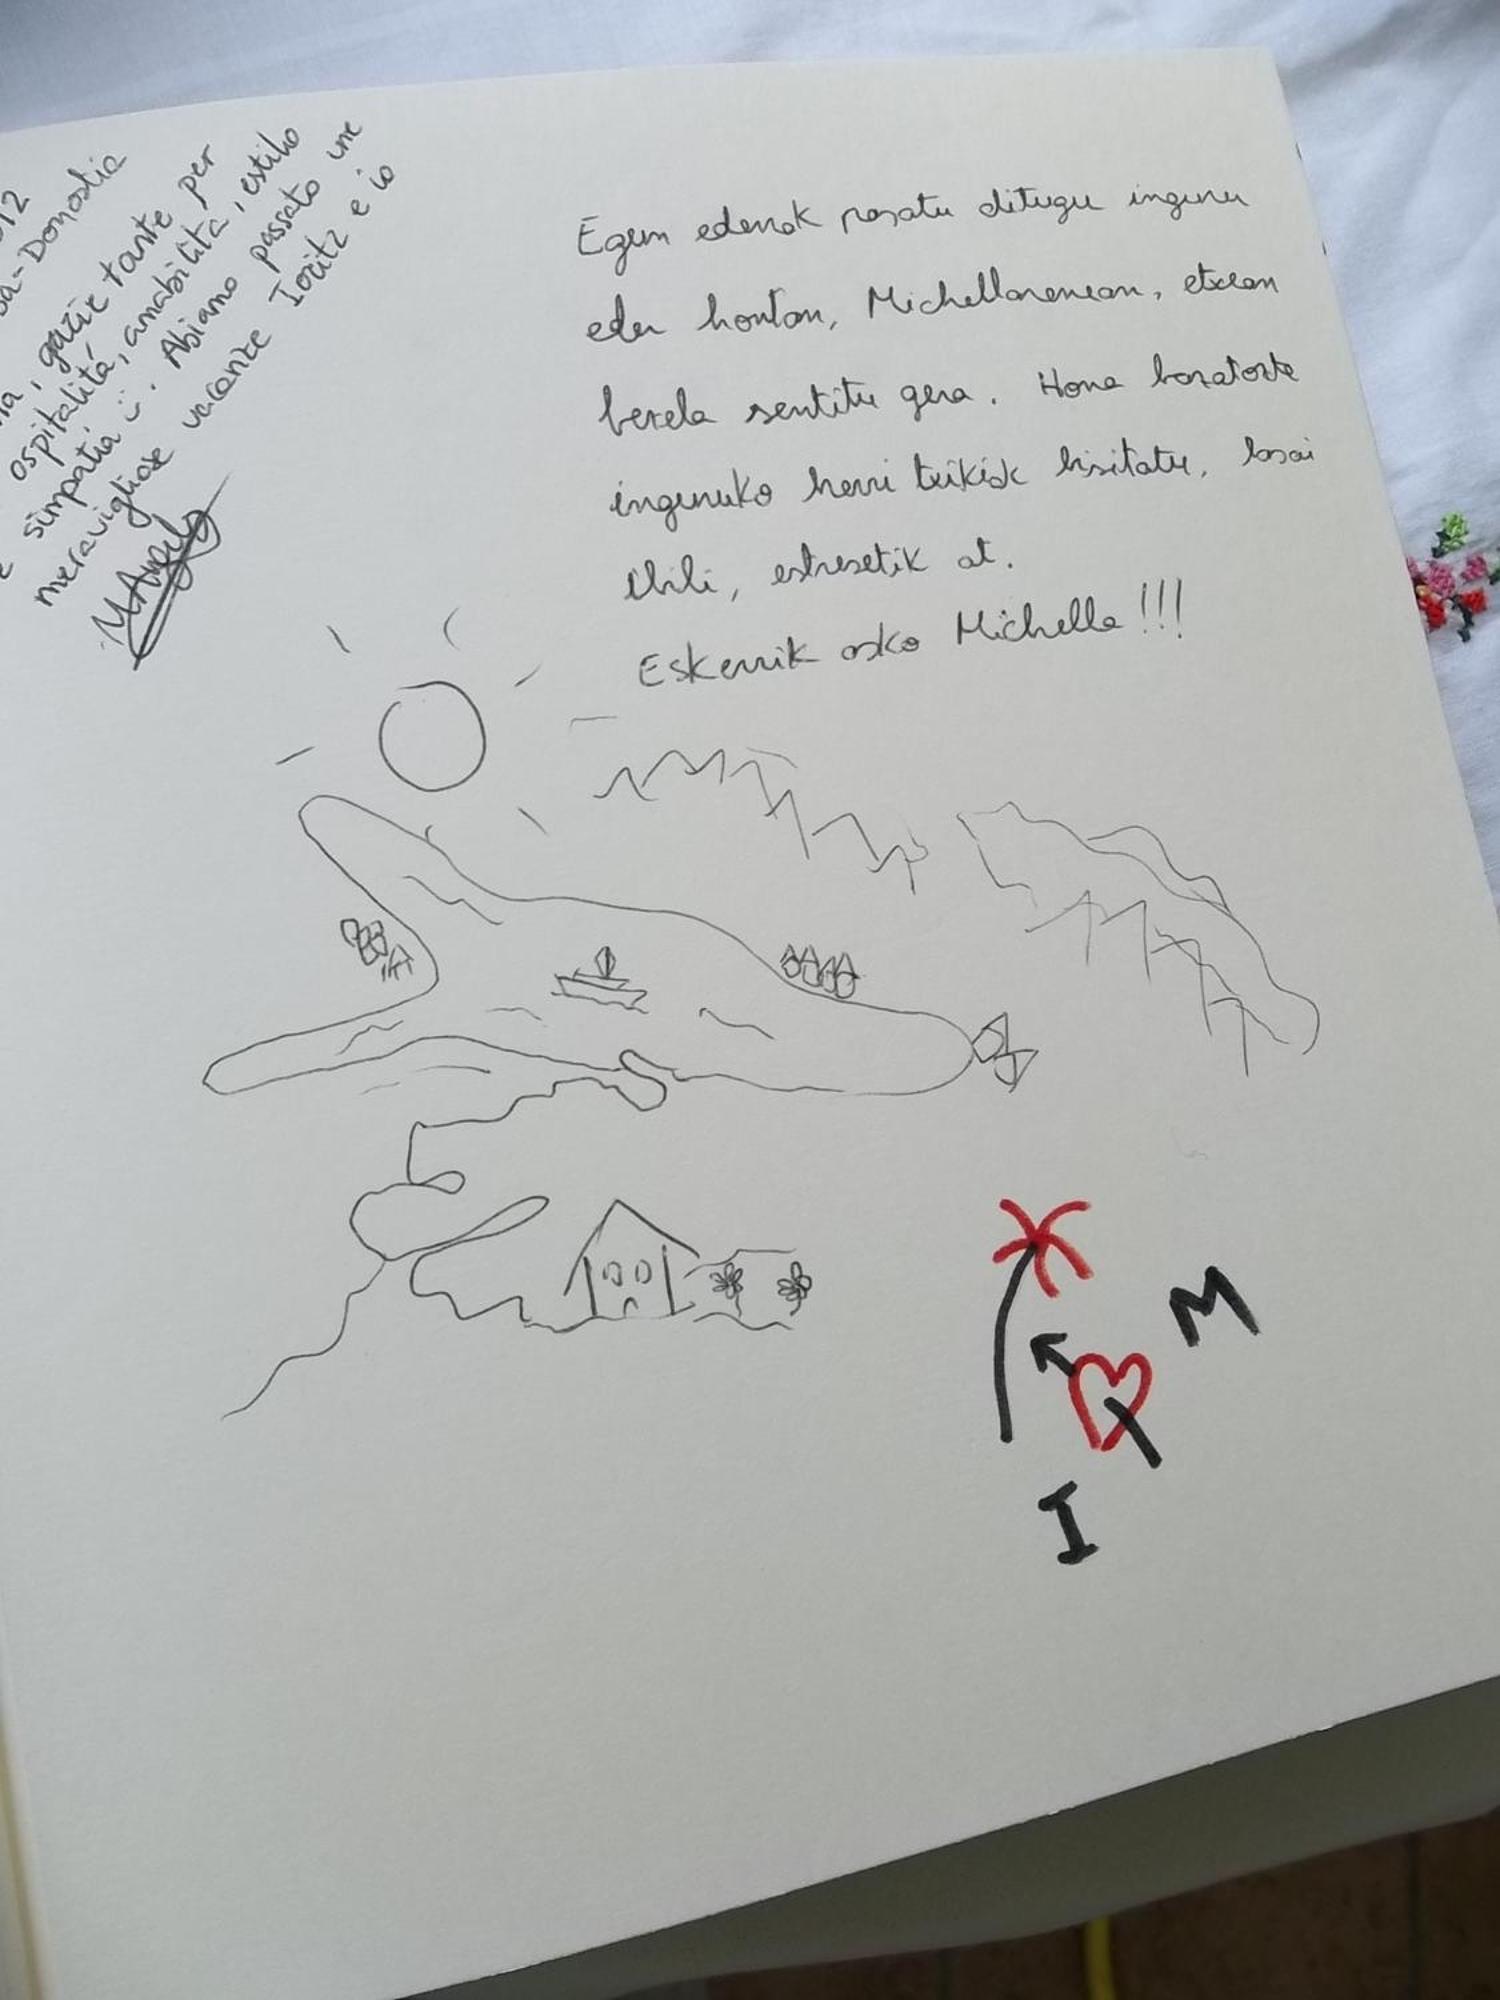 012
sa-Donostia
ia, gazie tante per
ospitalitá, amabilitá, estiho
e simpatia :). Abiamo passato une
meravigliose vacanze Ioritz e io
MAngelo
Egun ederrak pasatu ditugu inguru
eder hontan, Michellarenean, etxean
bezela sentitu gera. Hona bazatozte
inguruko herri txikiak bisitatu, lasai
ibili, estresetik at.
Eskerrik asko Michella!!!
M
I